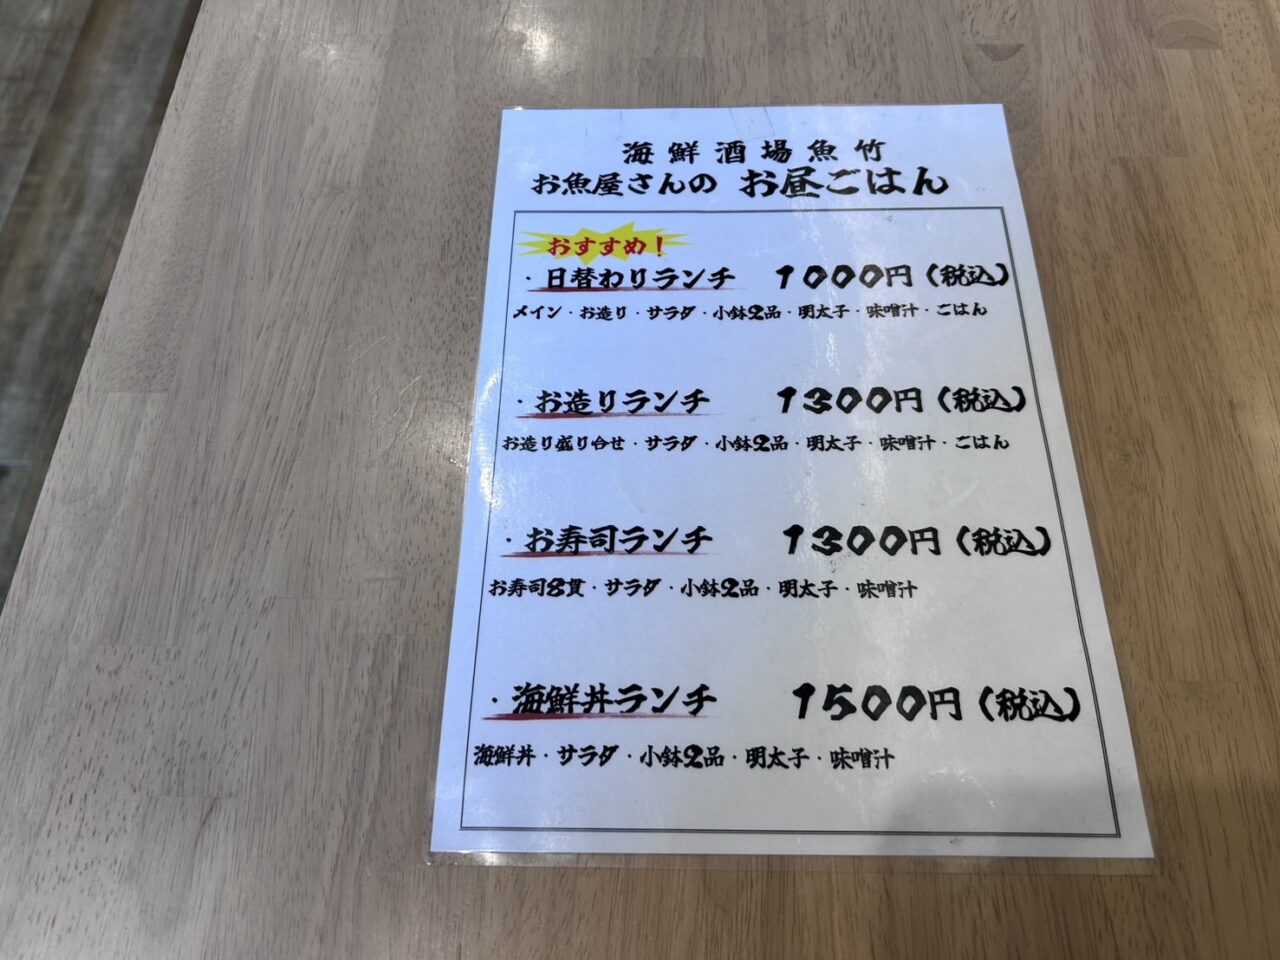 海鮮酒場魚竹
お魚屋さんの お昼ごはん
おすすめ!
・日替わりランチ 1000円(税込)
メイン・お造り・サラダ・小鉢2品・明太子・味噌汁・ごはん
・お造りランチ 1300円(税込)
お造り盛り合せ・サラダ・小鉢2品・明太子・味噌汁・ごはん
・お寿司ランチ 1300円(税込)
お寿司8貫・サラダ・小鉢2品・明太子・味噌汁
・海鮮丼ランチ 1500円(税込)
海鮮丼・サラダ・小鉢2品・明太子・味噌汁